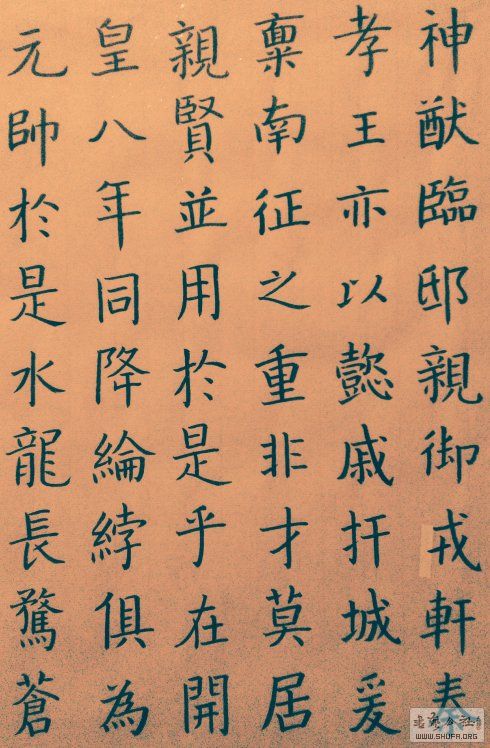 神猷臨邸親御戎軒秦
孝王亦以懿戚扞城爰
稟南征之重非才莫居
親賢並用於是乎在開
皇八年同降綸綍俱為
元帥於是水龍長騖蒼
WWW.SHUFA.ORG